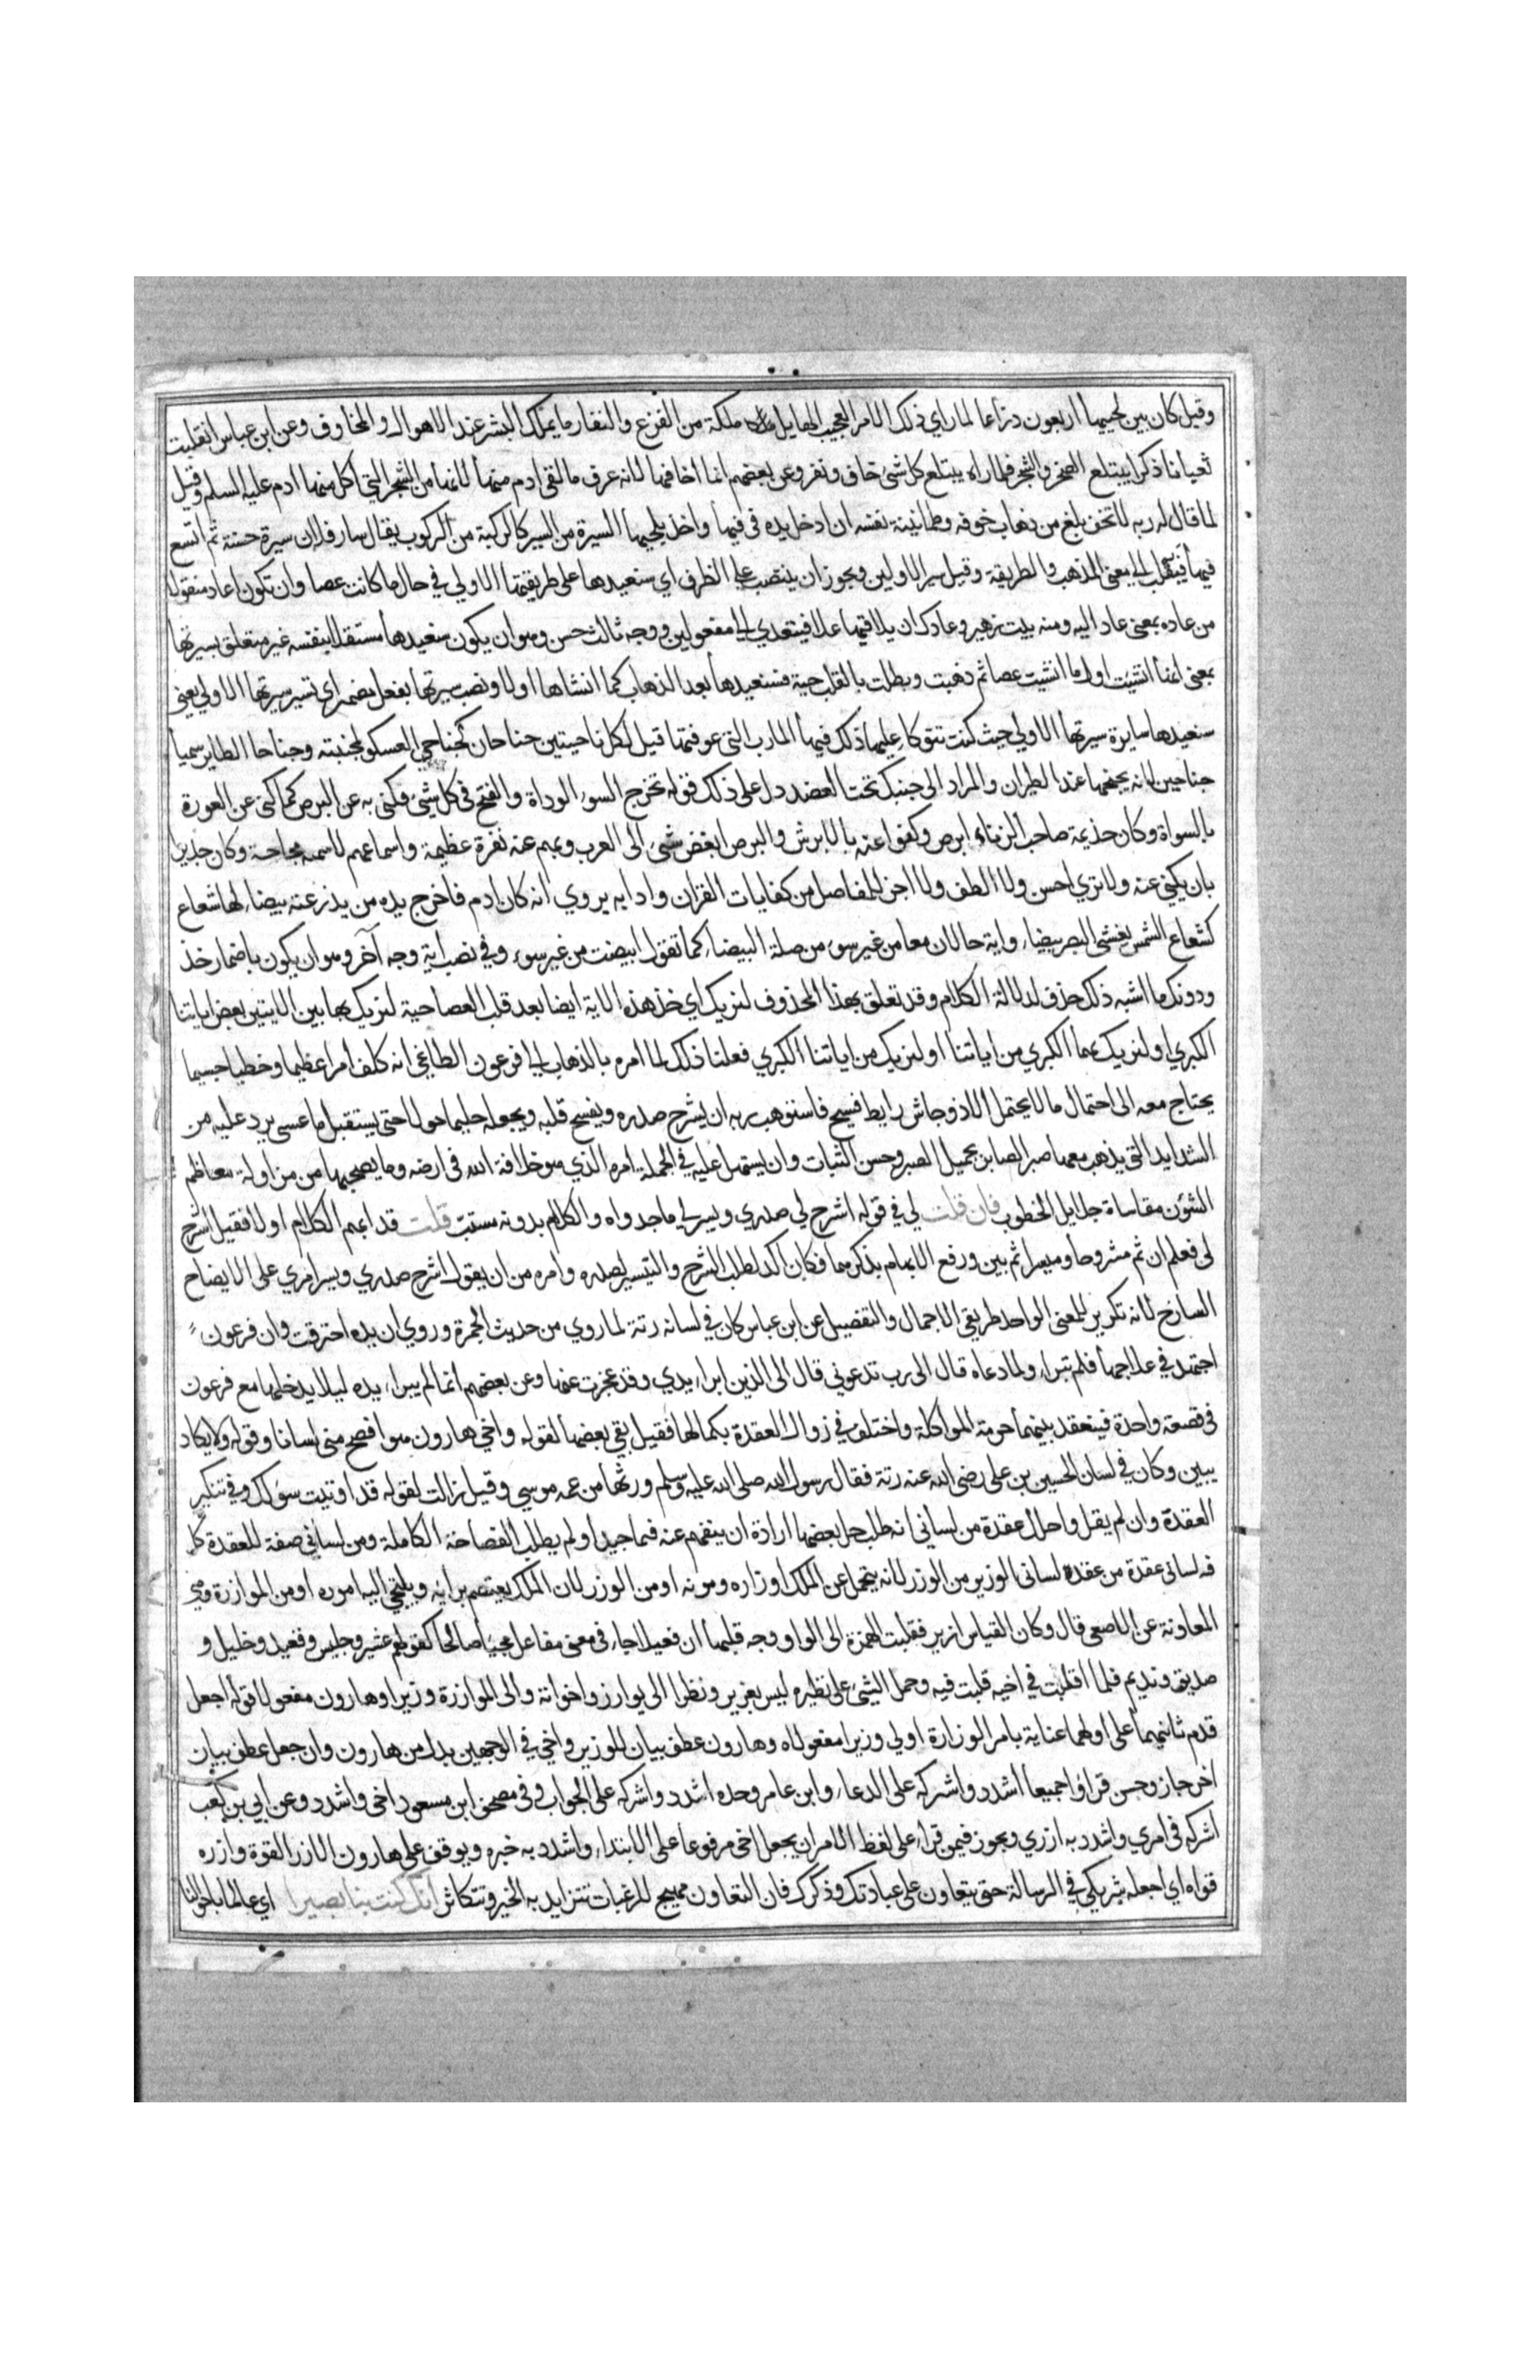 وقيل كان بين لحييها اربعون ذراعا لما راي ذلك الامر العجيب الهايل ملكة من الفزع والنفار ما يملك البشر عند الاهوال والمخاوف وعن ابن عباس انقلبت
ثعبانا ذكرا يبتلع الصخر والشجر فلما راه يبتلع كل شئ خاف ونفر وعن بعضهم انما اخافها لانه عرف ما لقي ادم منها لانها من الشجر التي اكل منها ادم عليه السلم وقيل
لما قال له ربه لا تخف بلغ من ذهاب خوفه وطمانينة نفسه ان ادخل يده في فيها واخذ بلحييها السيرة من السير كالركبة من الركوب يقال سار فلان سيرة حسنة ثم اتسع
فيها فنقلت الى معنى المذهب والطريقة وقيل سير الاولين ويجوز ان ينتصب على الظرف اي سنعيدها على طريقتها الاولي في حال ما كانت عصا وان تكون اعاد منقولا
من عاده بمعنى عاد اليه ومنه بيت زهير وعادك ان يلاقيها عدا فيتعدي الى مفعولين ووجه ثالث حسن وهو ان يكون سنعيدها مستقلا بنفسه غير متعلق بسيرتها
بمعنى انها انشيت اول ما انشيت عصا ثم ذهبت وبطلت بالقلب حية فسنعيدها بعد الذهاب كما انشاها اولا ونصب سيرتها بفعل مضمر اي تسير سيرتها الاولي يعني
سنعيدها سايرة سيرتها الاولي حيث كنت تتوكا عليها ذلك فيها المارب التي عرفتها قيل لكل ناحيتين جناحان كجناحي العسكر لمجنبته وجناحا الطاير سميا
جناحين لانه يجنحهما عند الطيران والمراد الى جنبك تحت العضد دل على ذلك قوله تخرج السوء الرداة والقبح في كل شئ فكنى به عن البرص كما كنى عن العورة
بالسواة وكان جذيمة صاحب الزباء ابرص وكنوا عنه بالابرش والبرص ابغض شئ الى العرب وبهم عنه نفرة عظيمة واسماعهم لاسمه مجاجة وكان جديرا
بان يكني عنه ولا نري احسن ولا الطف ولا اجز للمفاصل من كنايات القران وادابه يروي انه كان ادم فاخرج يده من يدرعته بيضاء لها شعاع
كشعاع الشمس يغشى البصر بيضاء واية حالان معا من غير سوء من صلة البيضاء كما تقول ابيضت من غير سوء وفي نصب اية وجه آخر وهو ان يكون باضمار خذ
ودونك ما اشبه ذلك حذف لدلالة الكلام وقد تعلق بهذا المحذوف لنريك اي خذ هذه الاية ايضا بعد قلب العصا حية لنريك بها بين الايتين بعض اياتنا
الكبري او لنريك بهما الكبري من اياتنا او لنريك من اياتنا الكبري فعلنا ذلك لما امره بالذهاب الى فرعون الطاغي انه كلف امرا عظيما وخطبا جسيما
يحتاج معه الى احتمال ما لا يحتمل الا ذو جاش رابط فسيح فاستوهب ربه ان يشرح صدره ويفسح قلبه ويجعله حليما حمولا حتى يستقبل ما عسى يرد عليه من
الشدايد التي يذهب معها صبر الصابر بجميل الصبر وحسن الثبات وان يسهل عليه في الجملة امره الذي هو خلافة الله في ارضه وما يصحبها من مزاولة معاظم
الشئون مقاساة جلايل الخطوب فان قلت لي في قوله اشرح لي صدري ويسر لي ما جدواه والكلام بدونه مستتب قلت قد ابهم الكلام اولا فقيل اشرح
لي فعلم ان ثم مشروحا وميسرا ثم بين ورفع الابهام بذكرهما فكان اكد لطلب الشرح والتيسير لصدره وامره من ان يقول اشرح صدري ويسر امري على الايضاح
الساذج لانه تكرير للمعنى الواحد طريقي الاجمال والتفصيل عن ابن عباس كان في لسانه رتة لما روي من حديث الجمرة وروي ان يده احترقت وان فرعون
اجتهد في علاجها فلم تبراء ولما دعاه قال الى رب تدعوني قال الى الذين ابراء يدي وقد عجزت عنها وعن بعضهم انما لم يبراء يده ليلا يدخلها مع فرعون
في قصعة واحدة فينعقد بينهما حرمة المواكلة واختلف في زوال العقدة بكمالها فقيل بقي بعضها لقوله واخي هارون هو افصح مني لسانا وقوله ولا يكاد
يبين وكان في لسان الحسين بن على رضى الله عنه رتة فقال رسول الله صلى الله عليه وسلم ورثها من عمه موسي وقيل زالت لقوله قد اوتيت سؤلك وفي تنكير
العقدة وان لم يقل واحلل عقدة من لساني انه طلب حل بعضها ارادة ان يتفهم عنه فهما جيدا ولم يطلب الفصاحة الكاملة ومن لساني صفة للعقدة كا
نه لساني عقدة من عقدة لسانى الوزير من الوزر لانه يتحمل عن الملك اوزاره ومونه او من الوزر لان الملك يعتصم برايه ويلتجي اليه اموره او من الموازرة وهي
المعاونة عن الاصمعي قال وكان القياس ازير فقلبت الهمزة الى الواو ووجه قلبها ان فعيلا جاء في معنى مفاعل مجيئا صالحا كقولهم عشير وجليس وقعيد وخليل و
صديق ونديم فلما اقلبت في اخيه قلبت فيه وحمل الشيئ على نظيره ليس بعزيز ونظرا الى يوارز واخواته والى الموازرة وزيرا وهارون مفعولا قوله اجعل
قدم ثانيهما على اولهما عناية بامر الوزارة اولي وزيرا مفعولاه وهارون عطف بيان للوزير واخي في الوجهين بدل من هارون وان جعل عطف بيان
اخر جاز وحسن قراوا جميعا اشدد واشركه على الدعاء وابن عامر وحده اشدد واشركه على الجواب وفي مصحف ابن مسعود اخى واشدد وعن ابي بن كعب
اشركه في امري واشدد به ازري ويجوز فيمن قراء على لفظ الامر ان يجعل اخي مرفوعا على الابتداء واشدد به خبره ويوقف على هارون الازر القوة وازره
قواه اي اجعله شريكي في الرسالة حتى يتعاون على عبادتك وذكرك فان التعاون مهيج للرغبات تتزايد به الخير وتتكاثر انك كنت بنا بصيرا اي عالما باحوالنا